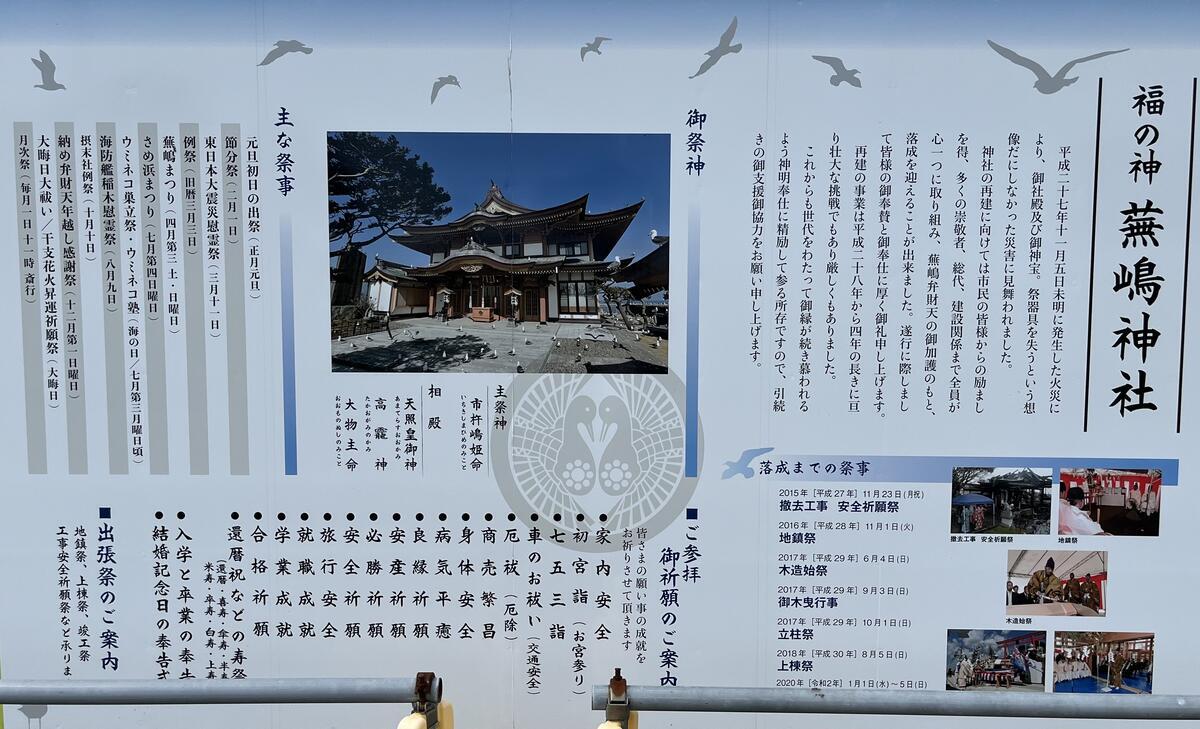 福の神 蕪嶋神社
平成二十七年十一月五日未明に発生した火災に
より、御社殿及び御神宝。祭器具を失うという想
像だにしなかった災害に見舞われました。
神社の再建に向けては市民の皆様からの励まし
を得、多くの崇敬者、総代、建設関係まで全員が
心一つに取り組み、蕪嶋弁財天の御加護のもと、
落成を迎えることが出来ました。遂行に際しまし
て皆様の御奉賛と御奉仕に厚く御礼申し上げます。
再建の事業は平成二十八年から四年の長きに亘
り壮大な挑戦でもあり厳しくもありました。
これからも世代をわたって御縁が続き慕われる
よう神明奉仕に精励して参る所存ですので、引続
きの御支援御協力をお願い申し上げます。
御祭神
主祭神
市杵嶋姫命
いちきしまひめのみこと
相殿
天照皇御神
あまてらすおおかみ
高龗神
たかおがみのかみ
大物主命
おおものぬしのみこと
主な祭事
元旦初日の出祭（正月元旦）
節分祭（二月一日）
東日本大震災慰霊祭（三月十一日）
例祭（旧暦三月三日）
蕪嶋まつり（四月第三土・日曜日）
さめ浜まつり（七月第四日曜日）
ウミネコ巣立祭・ウミネコ塾（海の日／七月第三月曜日頃）
海防艦稲木慰霊祭（八月九日）
摂末社例祭（十月十日）
納め弁財天年越し感謝祭（十二月第一日曜日）
大晦日大祓い／干支花火昇運祈願祭（大晦日）
月次祭（毎月一日十一時斎行）
落成までの祭事
2015年［平成27年］11月23日(月祝)
撤去工事 安全祈願祭
2016年［平成28年］11月1日(火)
地鎮祭
2017年［平成29年］6月4日(日)
木造始祭
2017年［平成29年］9月3日(日)
御木曳行事
2017年［平成29年］10月1日(日)
立柱祭
2018年［平成30年］8月5日(日)
上棟祭
2020年［令和2年］1月1日(水)～5日(日)
撤去工事 安全祈願祭
地鎮祭
木造始祭
■ご参拝
御祈願のご案内
皆さまの願い事の成就を
お祈りさせて頂きます
●家内安全
●初宮詣（お宮参り）
●七五三詣
●車のお祓い（交通安全）
●厄祓（厄除）
●商売繁昌
●身体安全
●病気平癒
●良縁祈願
●安産祈願
●必勝祈願
●安全祈願
●旅行安全
●就職成就
●学業成就
●合格祈願
●還暦祝などの寿祭
（還暦・喜寿・傘寿・半
米寿・卒寿・白寿・上
●入学と卒業の奉
●結婚記念日の奉告
■出張祭のご案内
地鎮祭、上棟祭、竣工祭
工事安全祈願祭など承りま